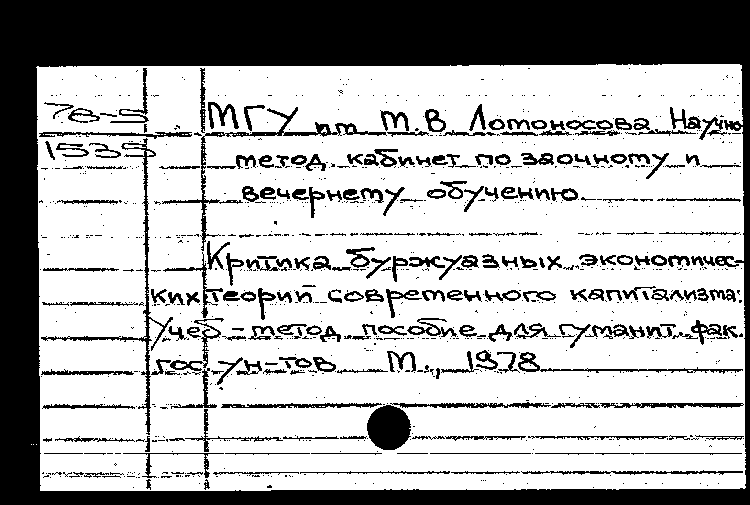 78-5
1535
МГУ им М.В Ломоносова Научно
метод. кабинет по заочному и
вечернему обучению.
Критика буржуазных экономичес-
ких теорий современного капитализма:
Учеб-метод пособие для гуманит. фак.
гос. ун-тов М., 1978